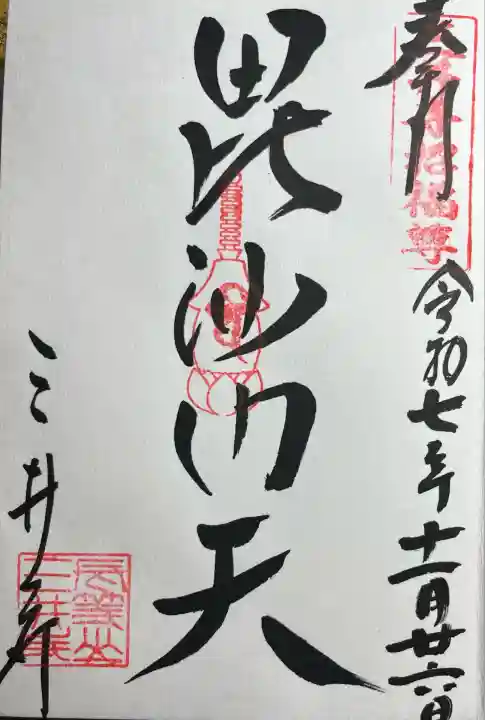 奉拝
令和七年十一月廿六日
毘沙門天
三井寺
長等山
三井寺